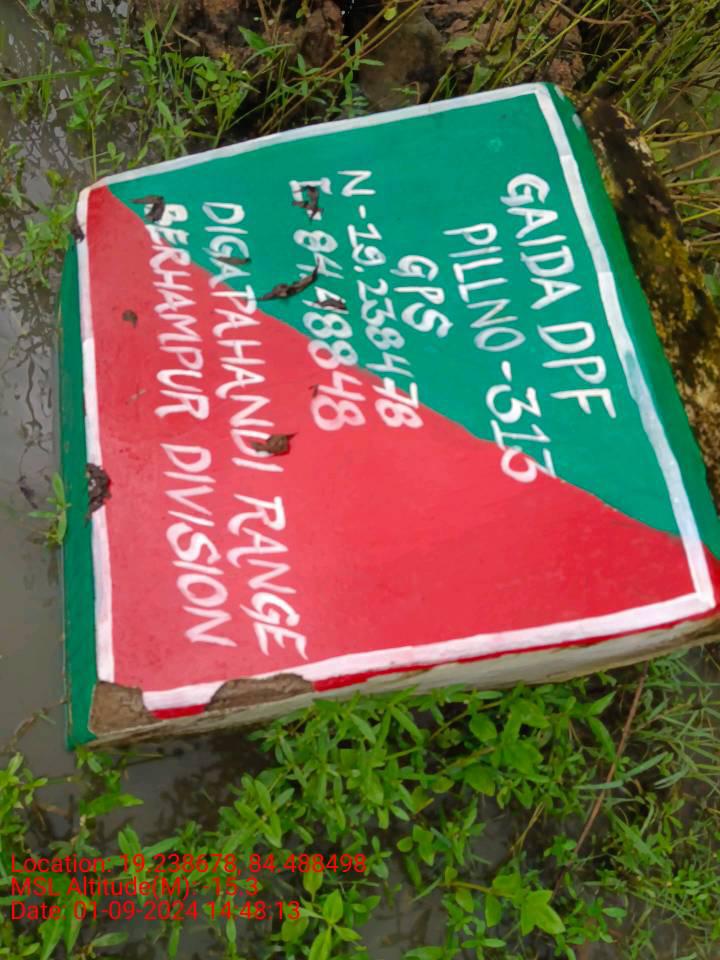 GAIDA DPF
PILLNO-313
GPS
N-19.238478
E-84.48848
DIGAPAHANDI RANGE
BERHAMPUR DIVISION
Location: 19.238678, 84.488498
MSL Altitude(M): -15.3
Date: 01-09-2024 14:48:13